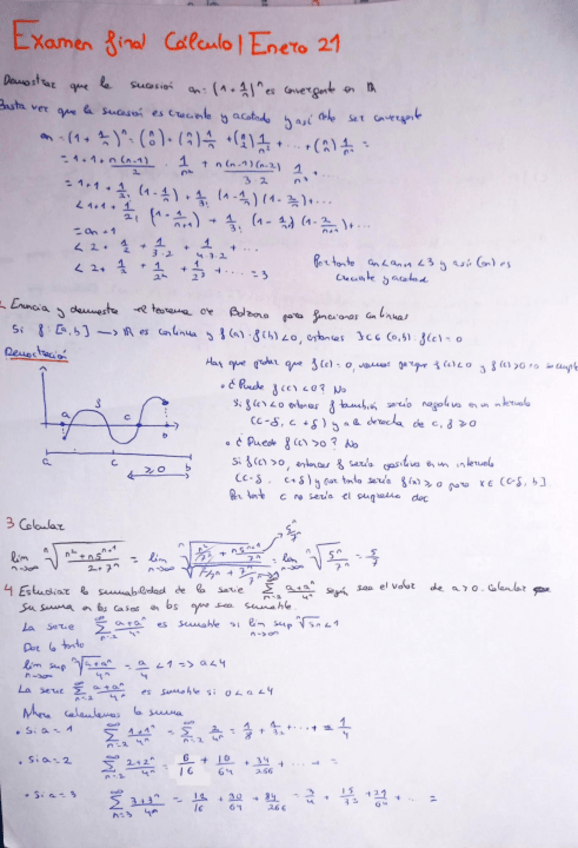 Examen final Cálculo I Enero 21
Demostrar que la sucesión an = (1 + 1/n)^n es convergente en ℝ
Basta ver que la sucesión es creciente y acotada y así debe ser convergente
an = (1 + 1/n)^n = (n 0) + (n 1) 1/n + (n 2) 1/n² + ... + (n n) 1/nⁿ =
= 1 + 1 + n(n-1)/2 · 1/n² + n(n-1)(n-2)/3·2 1/n³ + ...
= 1 + 1 + 1/2! (1 - 1/n) + 1/3! (1 - 1/n)(1 - 2/n) + ...
< 1 + 1 + 1/2! (1 - 1/n+1) + 1/3! (1 - 1/n+1)(1 - 2/n+1) + ...
= an+1
< 2 + 1/2 + 1/3·2 + 1/4·3·2 + ...
< 2 + 1/2 + 1/2² + 1/2³ + ... = 3
Por tanto an < an+1 < 3 y así (an) es
creciente y acotada
2 Enuncia y demuestra el teorema de Bolzano para funciones continuas
Si f: [a,b] → ℝ es continua y f(a)·f(b) < 0, entonces ∃c∈(a,b): f(c) = 0
Demostración
Hay que probar que f(c) = 0, veamos porque f(c)<0 y f(c)>0 no se cumple
• ¿Puede f(c) < 0? No
Si f(c) < 0 entonces f también sería negativa en un intervalo
(c-δ, c+δ) y a la derecha de c, f ≥ 0
• ¿Puede f(c) > 0? No
Si f(c) > 0, entonces f sería positiva en un intervalo
(c-δ, c+δ) y por tanto sería f(x) ≥ 0 para x∈(c-δ, b]
Por tanto c no sería el supremo de
a f c b
a c b
≥ 0
3 Calcular
lim n→∞ ⁿ√(n² + n5ⁿ⁺¹ / 2 + 7ⁿ) = lim n→∞ = lim n→∞ ⁿ√(5ⁿ/7ⁿ) = 5/7
4 Estudiar la sumabilidad de la serie ∑ n=2 ∞ a+aⁿ/4ⁿ según sea el valor de a>0. Calcular
su suma en los casos en los que sea sumable.
La serie ∑ n=2 ∞ a+aⁿ/4ⁿ es sumable si lim sup n→∞ < 1
Por lo tanto
lim sup n→∞ ⁿ√(a+aⁿ/4ⁿ) = a/4 < 1 => a < 4
La serie ∑ n=2 ∞ a+aⁿ/4ⁿ es sumable si 0 < a < 4
Ahora calculemos la suma
• Si a = 1 ∑ n=2 ∞ 1+1ⁿ/4ⁿ = ∑ n=2 ∞ 2/4ⁿ = 1/8 + 1/32 + ... + = 1/4
• Si a = 2 ∑ n=2 ∞ 2+2ⁿ/4ⁿ = 6/16 + 10/64 + 34/256 + ... + =
• Si a = 3 ∑ n=3 ∞ 3+3ⁿ/4ⁿ = /16 + 30/64 + 84/256 = 3/4 + 15/32 + 21/64 + ... =